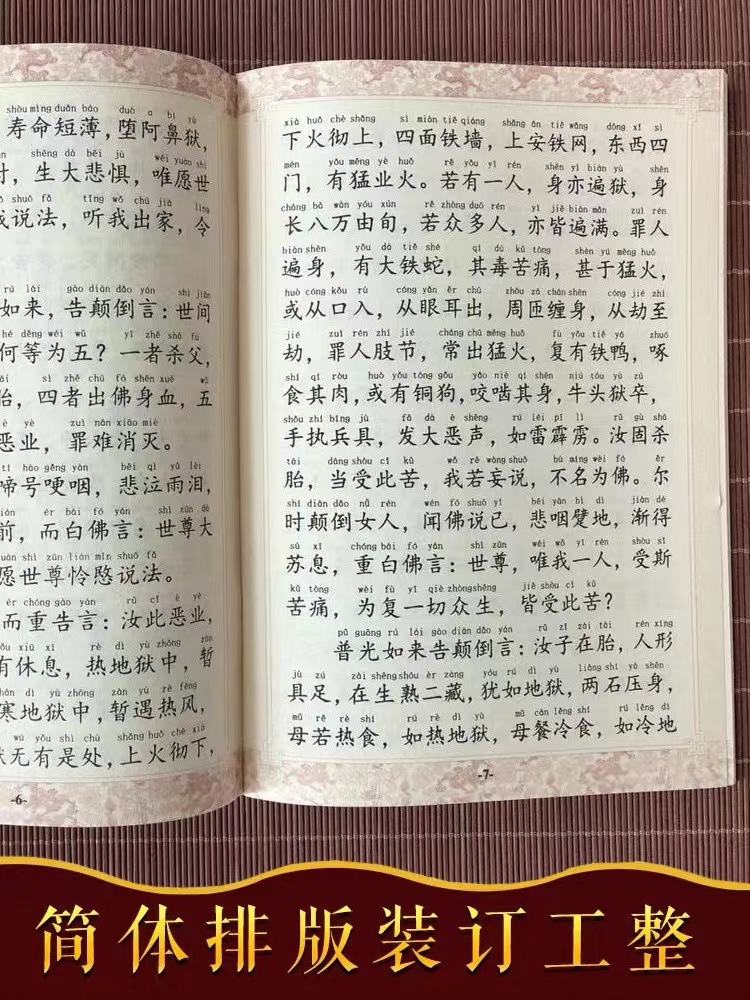 shòu mìng duǎn báo duò ā bí yù
寿命短薄，堕阿鼻狱，
shēng dà bēi jù wéi yuàn shì
时，生大悲惧，唯愿世
tīng wǒ chū jiā lìng
我说法，听我出家，令
rú lái gào diān dǎo yán shì jiān
如来，告颠倒言：世间
hé děng wéi wǔ yī zhě shā fù
何等为五？一者杀父，
sì zhě chū fó shēn xuè wǔ
胎，四者出佛身血，五
è yè zuì nán xiāo miè
恶业，罪难消灭。
tí háo gěng yàn bēi qì yǔ lèi
啼号哽咽，悲泣雨泪，
ér bái fó yán shì zūn dà
前，而白佛言：世尊大
yuàn shì zūn lián mǐn shuō fǎ
愿世尊怜愍说法。
ér chóng gào yán rǔ cǐ è yè
而重告言：汝此恶业，
yǒu xiū xī rè dì yù zhōng zàn
有休息，热地狱中，暂
hán dì yù zhōng zàn yù rè fēng
寒地狱中，暂遇热风，
yù wú yǒu shì chù shàng huǒ chè xià
狱无有是处，上火彻下，
-6-
xià huǒ chè shàng sì miàn tiě qiáng shàng ān tiě wǎng dōng xī sì
下火彻上，四面铁墙，上安铁网，东西四
mén yǒu měng yè huǒ rě yǒu yī rén shēn yì biàn yù shēn
门，有猛业火。若有一人，身亦遍狱，身
cháng bā wàn yóu xún ruò zhòng duō rén yì jiē biàn mǎn zuì rén
长八万由旬，若众多人，亦皆遍满。罪人
biàn shēn yǒu dà tiě shé qí dú kǔ tòng shèn yú měng huǒ
遍身，有大铁蛇，其毒苦痛，甚于猛火，
huò cóng kǒu rù cóng yǎn ěr chū zhōu zā chán shēn cóng jié zhì
或从口入，从眼耳出，周匝缠身，从劫至
jié zuì rén zhī jié cháng chū měng huǒ fù yǒu tiě yā zhuó
劫，罪人肢节，常出猛火，复有铁鸭，啄
shí qí ròu huò yǒu tóng gǒu yǎo niè qí shēn niú tóu yù zú
食其肉，或有铜狗，咬啮其身，牛头狱卒，
shǒu zhí bīng jù fā dà è shēng rú léi pī lì rǔ gù shā
手执兵具，发大恶声，如雷霹雳。汝固杀
tāi dāng shòu cǐ kǔ wǒ ruò wàng shuō bù míng wéi fó ěr
胎，当受此苦，我若妄说，不名为佛。尔
shí diān dǎo nǚ rén wén fó shuō yǐ bēi yàn bì dì jiàn dé
时颠倒女人，闻佛说已，悲咽躄地，渐得
sū xī chóng bái fó yán shì zūn wéi wǒ yī rén shòu sī
苏息，重白佛言：世尊，唯我一人，受斯
kǔ tòng wéi fù yī qiè zhòng shēng jiē shòu cǐ kǔ
苦痛，为复一切众生，皆受此苦？
pǔ guāng rú lái gào diān dǎo yán rǔ zǐ zài tāi rén xíng
普光如来告颠倒言：汝子在胎，人形
jù zú zài shēng shóu èr zàng yóu rú dì yù liǎng shí yā shēn
具足，在生熟二藏，犹如地狱，两石压身，
mǔ ruò rè shí rú rè dì yù mǔ cān lěng shí rú lěng dì
母若热食，如热地狱，母餐冷食，如冷地
-7-
简体排版装订工整